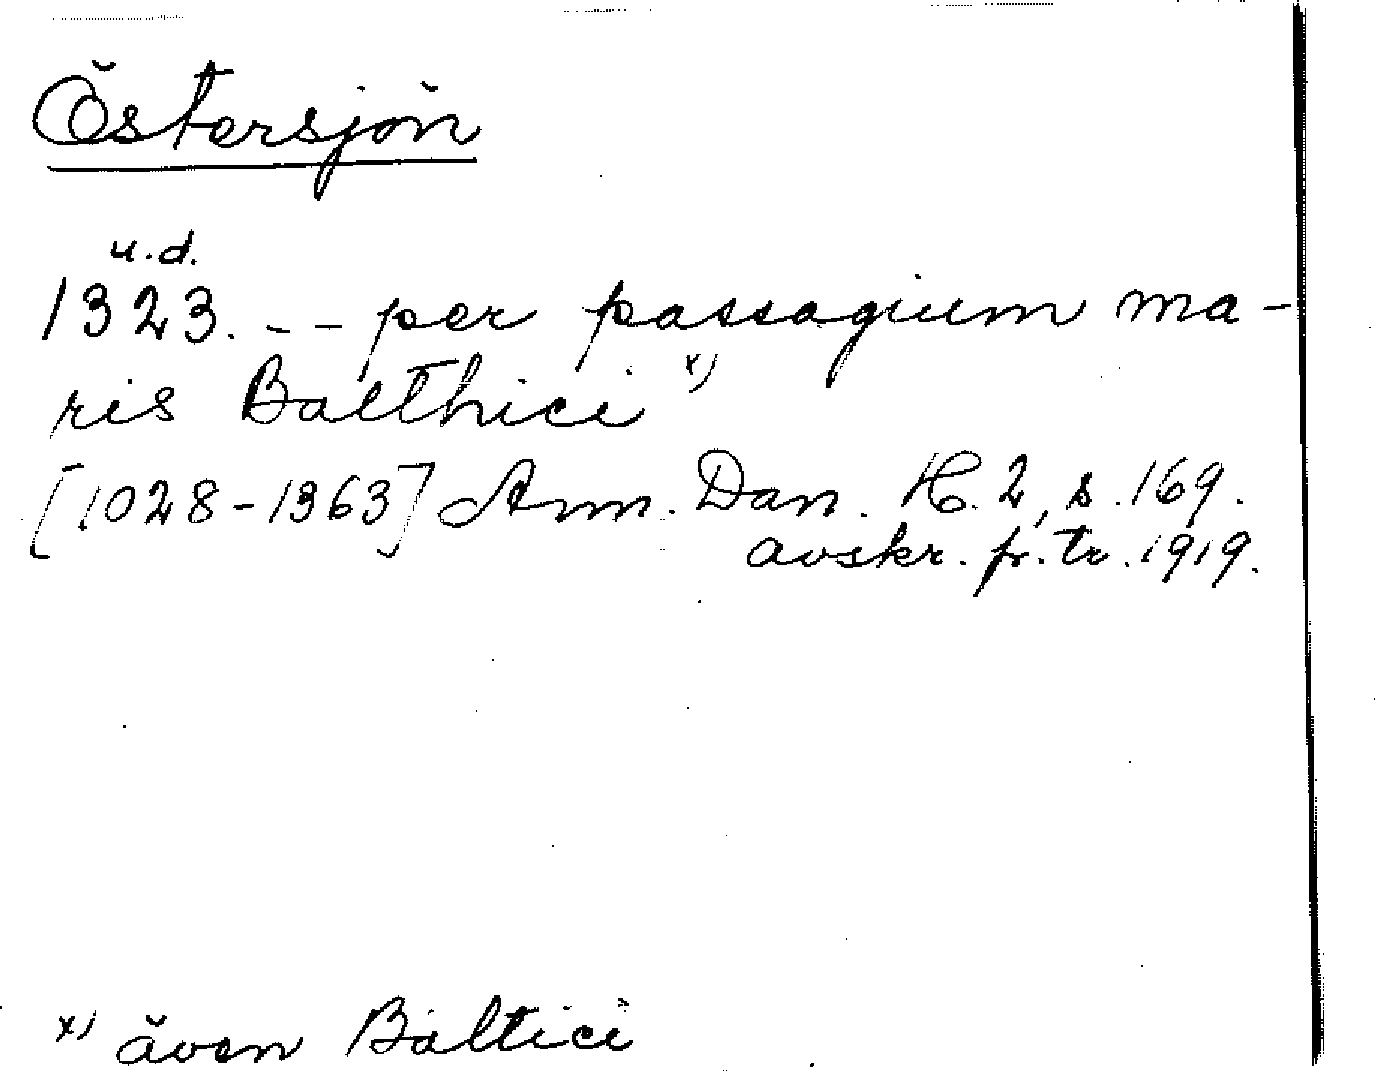 Östersjön
u.d.
1323. -- per passagium ma-
ris Balthici x)
[1028-1363] Ann. Dan. H. 2, s. 169.
avskr. fr. tr. 1919.
x) även Baltici